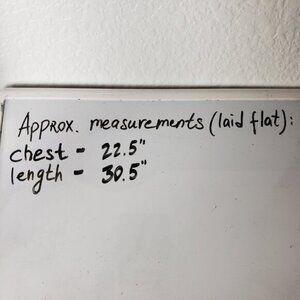 Approx. measurements (laid flat):
chest - 22.5"
length - 30.5"